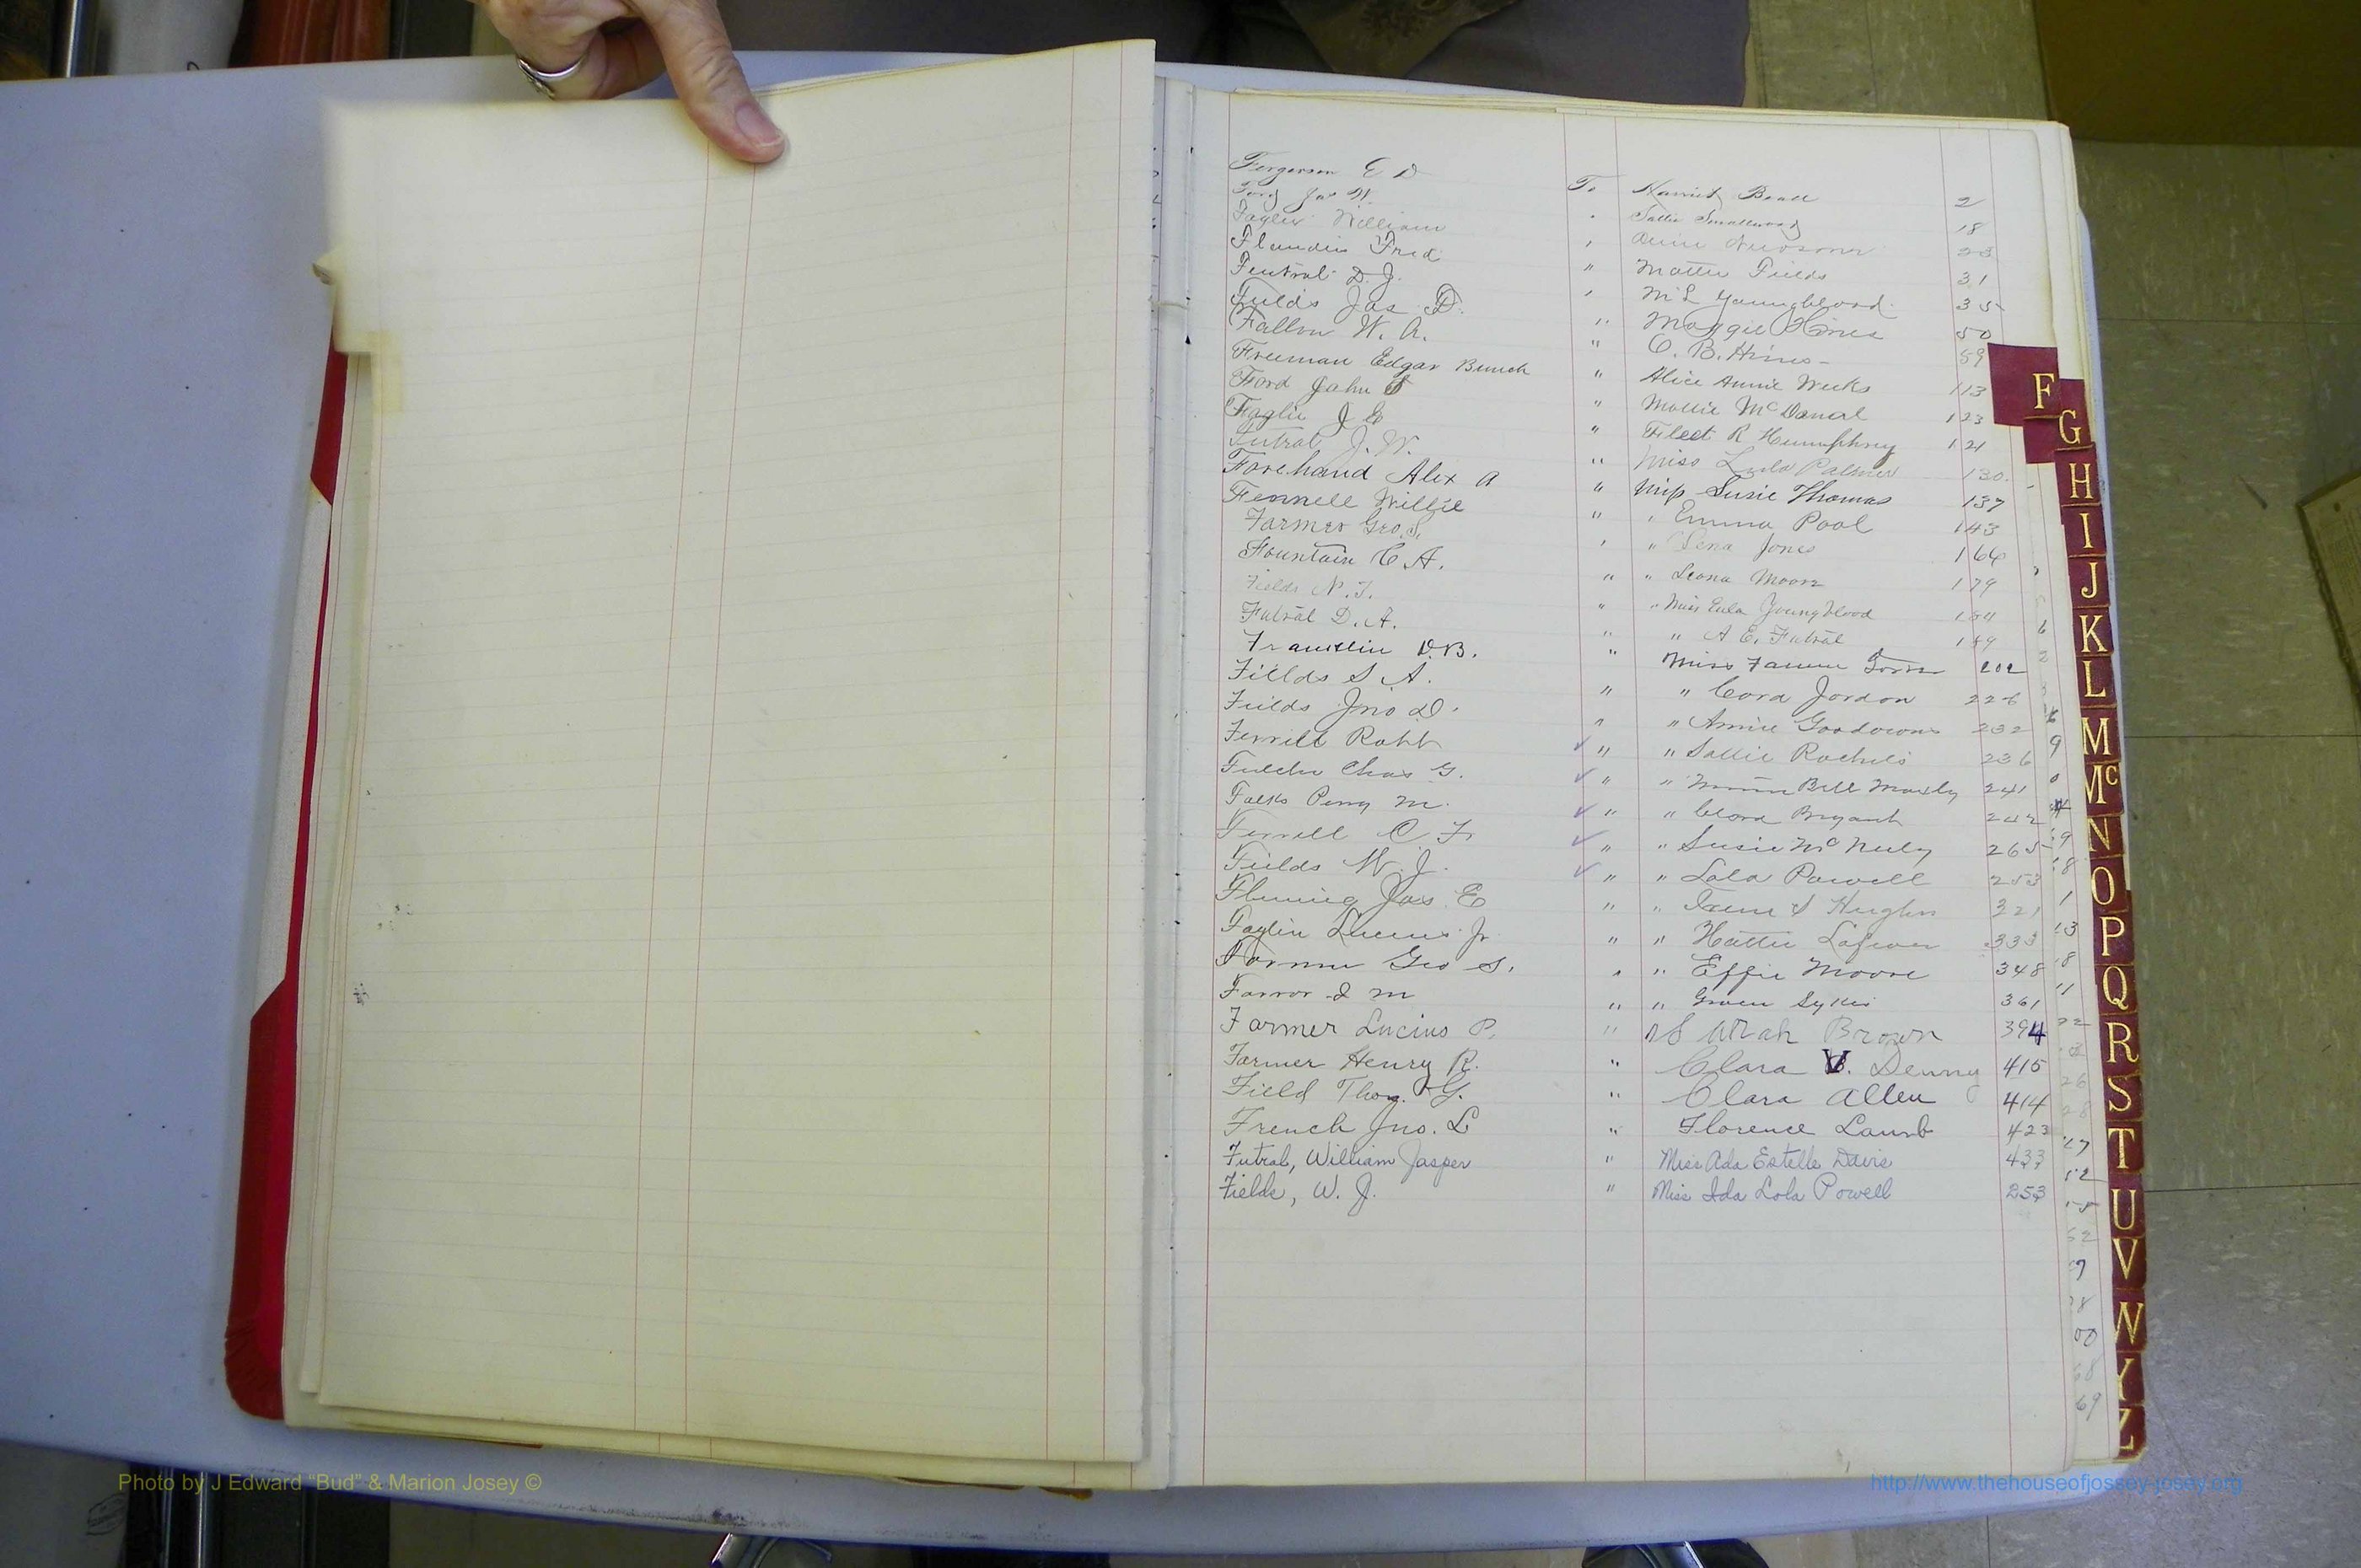 Fergerson E D To Harriet Beall 2
Ford Jas W. " Sallie Smallwood 18
Fagler William " Newsome 23
Flanders Fred " Mattie Fields 31
Futral D. J. " M L Youngblood 35
Fields Jas D. " Maggie Hines 50
Fallon W. A. " O. B. Hines 59
Freeman Edgar Bunch " Alice Annie Weeks 113
Ford John S " Mollie McDanal 123
Faglie J E " R Humphrey 121
Futral J. W. " Miss Lula Palmer 130
Forehand Alex A " Miss Susie Thomas 137
Fennell Willie " " Emma Pool 143
Farmer Geo. S. " " Lena Jones 166
Fountain C A. " " Leona Moore 179
Fields N. T. " " Miss Eula Youngblood 184
Futral D. A. " " A E. Futral 189
Franklin D.B. " Miss Fannie 202
Fields S A. " " Cora Jordon 226
Fields Jno D. " " Annie Goodowns 232
Ferrell Robt " " Sallie Rachels 236
Fulcher Chas G. " " Bell Moxly 241
Falks Perry M. " " Clora Bryant 242
Ferrell C Fr " " Susie McNeely 265
Fields W. J. " " Lola Powell 253
Fleming Jas. E " " Irene S Hughs 321
Faglin Lucius Jr " " Hattie 333
Farmer Geo S. " " Effie Moore 348
Farror J M " " Green Sykes 361
Farmer Lucius P. " Sarah Brown 394
Farmer Henry R. " Clara V. Denny 415
Field Thos. G. " Clara Allen 414
French Jno. L " Florence Lamb 423
Futral, William Jasper " Miss Ada Estelle Davis 433
Fields, W. J. " Miss Ida Lola Powell 253
F
G
H
I
J
K
L
M
Mc
N
O
P
Q
R
S
T
U
V
W
Y
Z
Photo by J Edward “Bud” & Marion Josey ©
http://www.thehouseofjossey-josey.org